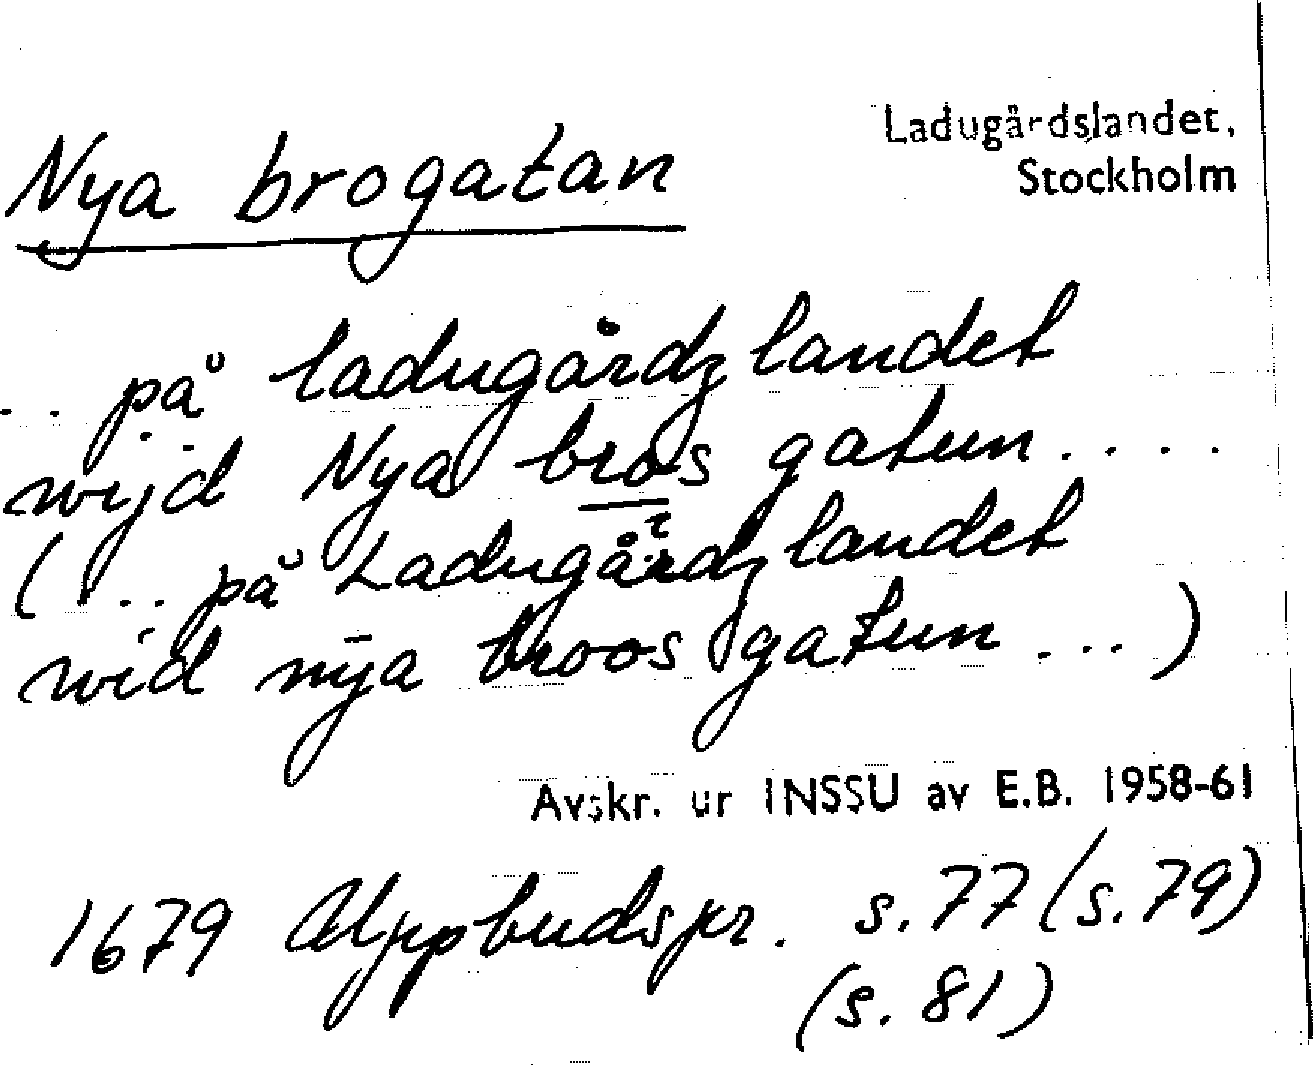 Nya brogatan
Ladugårdslandet,
Stockholm
.. på ladugårdz landet
wijd Nya bros gatun....
(... på Ladugårdz landet
wid nya broos gatun ...)
Avskr. ur INSSU av E.B. 1958-61
1679 Uppbudspr. s.77 (s.79)
(s. 81)